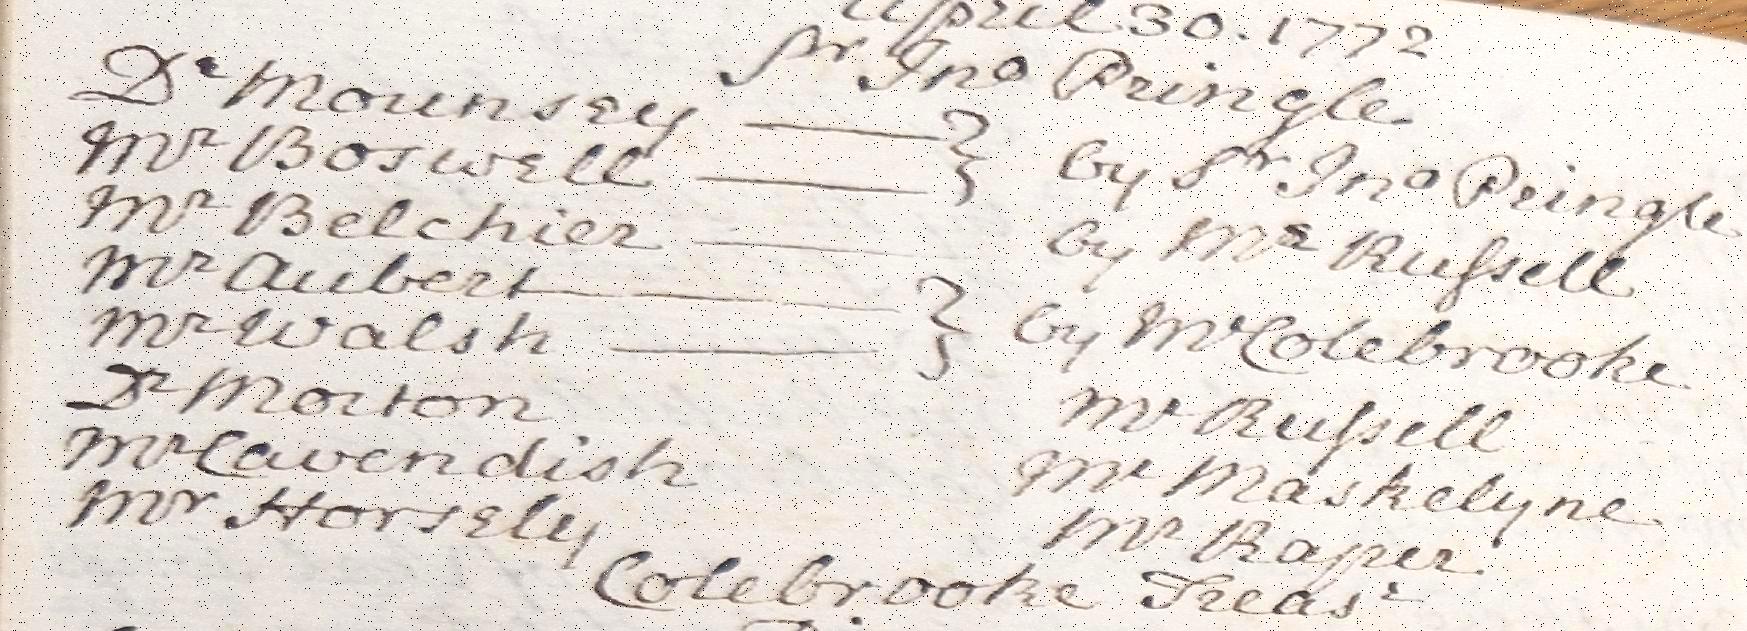 April 30. 1772
Sr Jno Pringle
Dr Mounsey
Mr Boswell } by Sr Jno Pringle
Mr Belchier by Mr Russell
Mr Aubert
Mr Walsh } by Mr Colebrooke
Dr Morton Mr Russell
Mr Cavendish Mr Maskelyne
Mr Horsely Mr Raper
Colebrooke Treasr